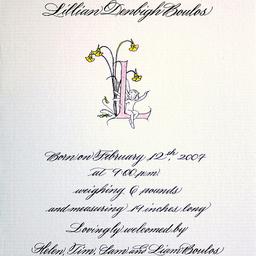 Lillian Denbigh Boulos
L
Born on February 12th, 2007
at 9:00 p.m
weighing 6 pounds
and measuring 19 inches long
Lovingly welcomed by
Helen, Tim, Sam & Liam Boulos